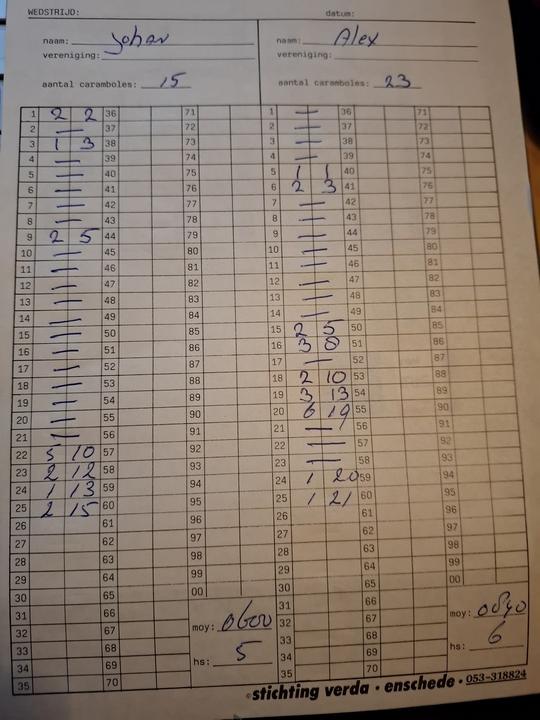 WEDSTRIJD: datum:
naam: Johan naam: Alex
vereniging: vereniging:
aantal caramboles: 15 aantal caramboles: 23
1 2 2 36 71 1 — 36 71
2 — 37 72 2 — 37 72
3 1 3 38 73 3 — 38 73
4 — 39 74 4 — 39 74
5 — 40 75 5 1 1 40 75
6 — 41 76 6 2 3 41 76
7 — 42 77 7 — 42 77
8 — 43 78 8 — 43 78
9 2 5 44 79 9 — 44 79
10 — 45 80 10 — 45 80
11 — 46 81 11 — 46 81
12 — 47 82 12 — 47 82
13 — 48 83 13 — 48 83
14 — 49 84 14 — 49 84
15 — 50 85 15 2 5 50 85
16 — 51 86 16 3 8 51 86
17 — 52 87 17 — 52 87
18 — 53 88 18 2 10 53 88
19 — 54 89 19 3 13 54 89
20 — 55 90 20 6 19 55 90
21 — 56 91 21 — 56 91
22 5 10 57 92 22 — 57 92
23 2 12 58 93 23 — 58 93
24 1 13 59 94 24 1 20 59 94
25 2 15 60 95 25 1 21 60 95
26 61 96 26 61 96
27 62 97 27 62 97
28 63 98 28 63 98
29 64 99 29 64 99
30 65 00 30 65 00
31 66 31 66
32 67 moy: 0600 32 67 moy: 0840
33 68 33 68
34 69 hs: 5 34 69 hs: 6
35 70 35 70
©stichting verda • enschede • 053-318824